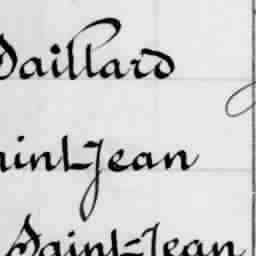 Saillard
aint-Jean
Saint-Jean